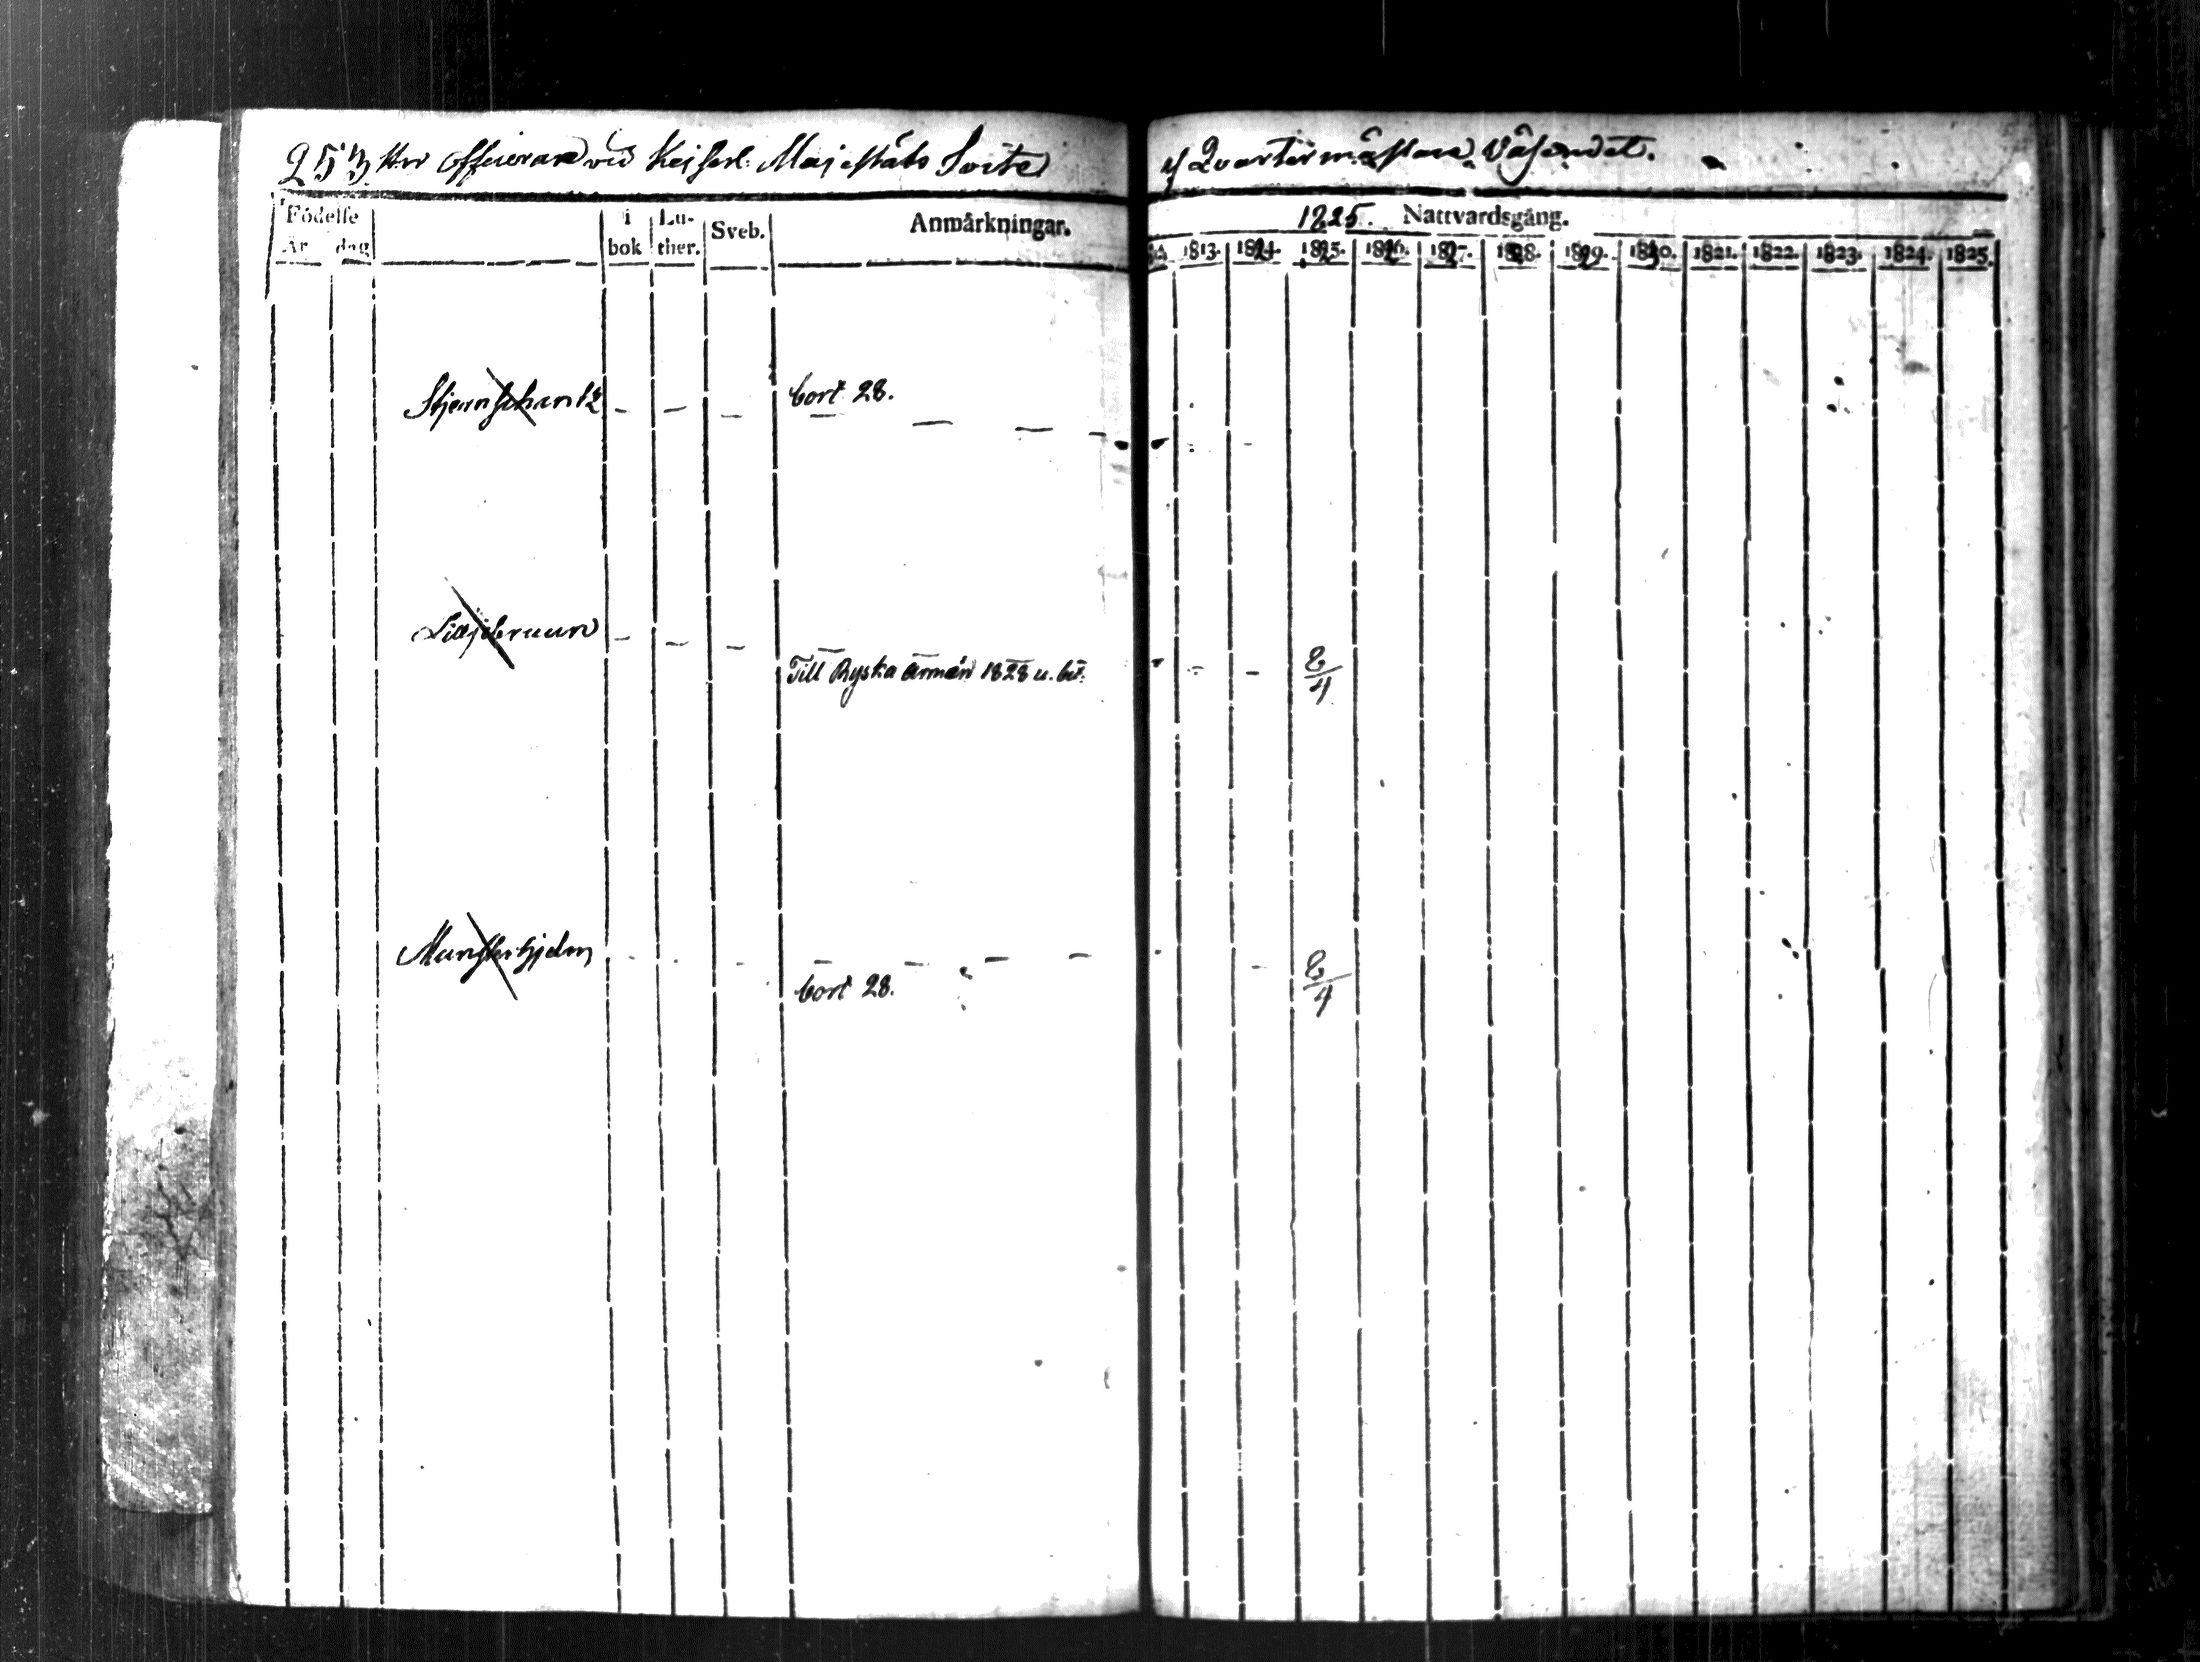 253 Hrr Officerare vid Keiserl. Majestäts Svite
af Quartermästare Väsendet.
Födelse
År dag
i bok
Lu-ther.
Sveb.
Anmärkningar.
1825. Nattvardsgång.
1813. 1824. 1825. 1826. 1827. 1828. 1829. 1830. 1821. 1822. 1823. 1824. 1825.
Stjernschantz - - - bort 28.
Lilljebruun - - -
Till Ryska Armén 1828 u. bet. 8/4
Munsterhjelm 8/4
bort 28.